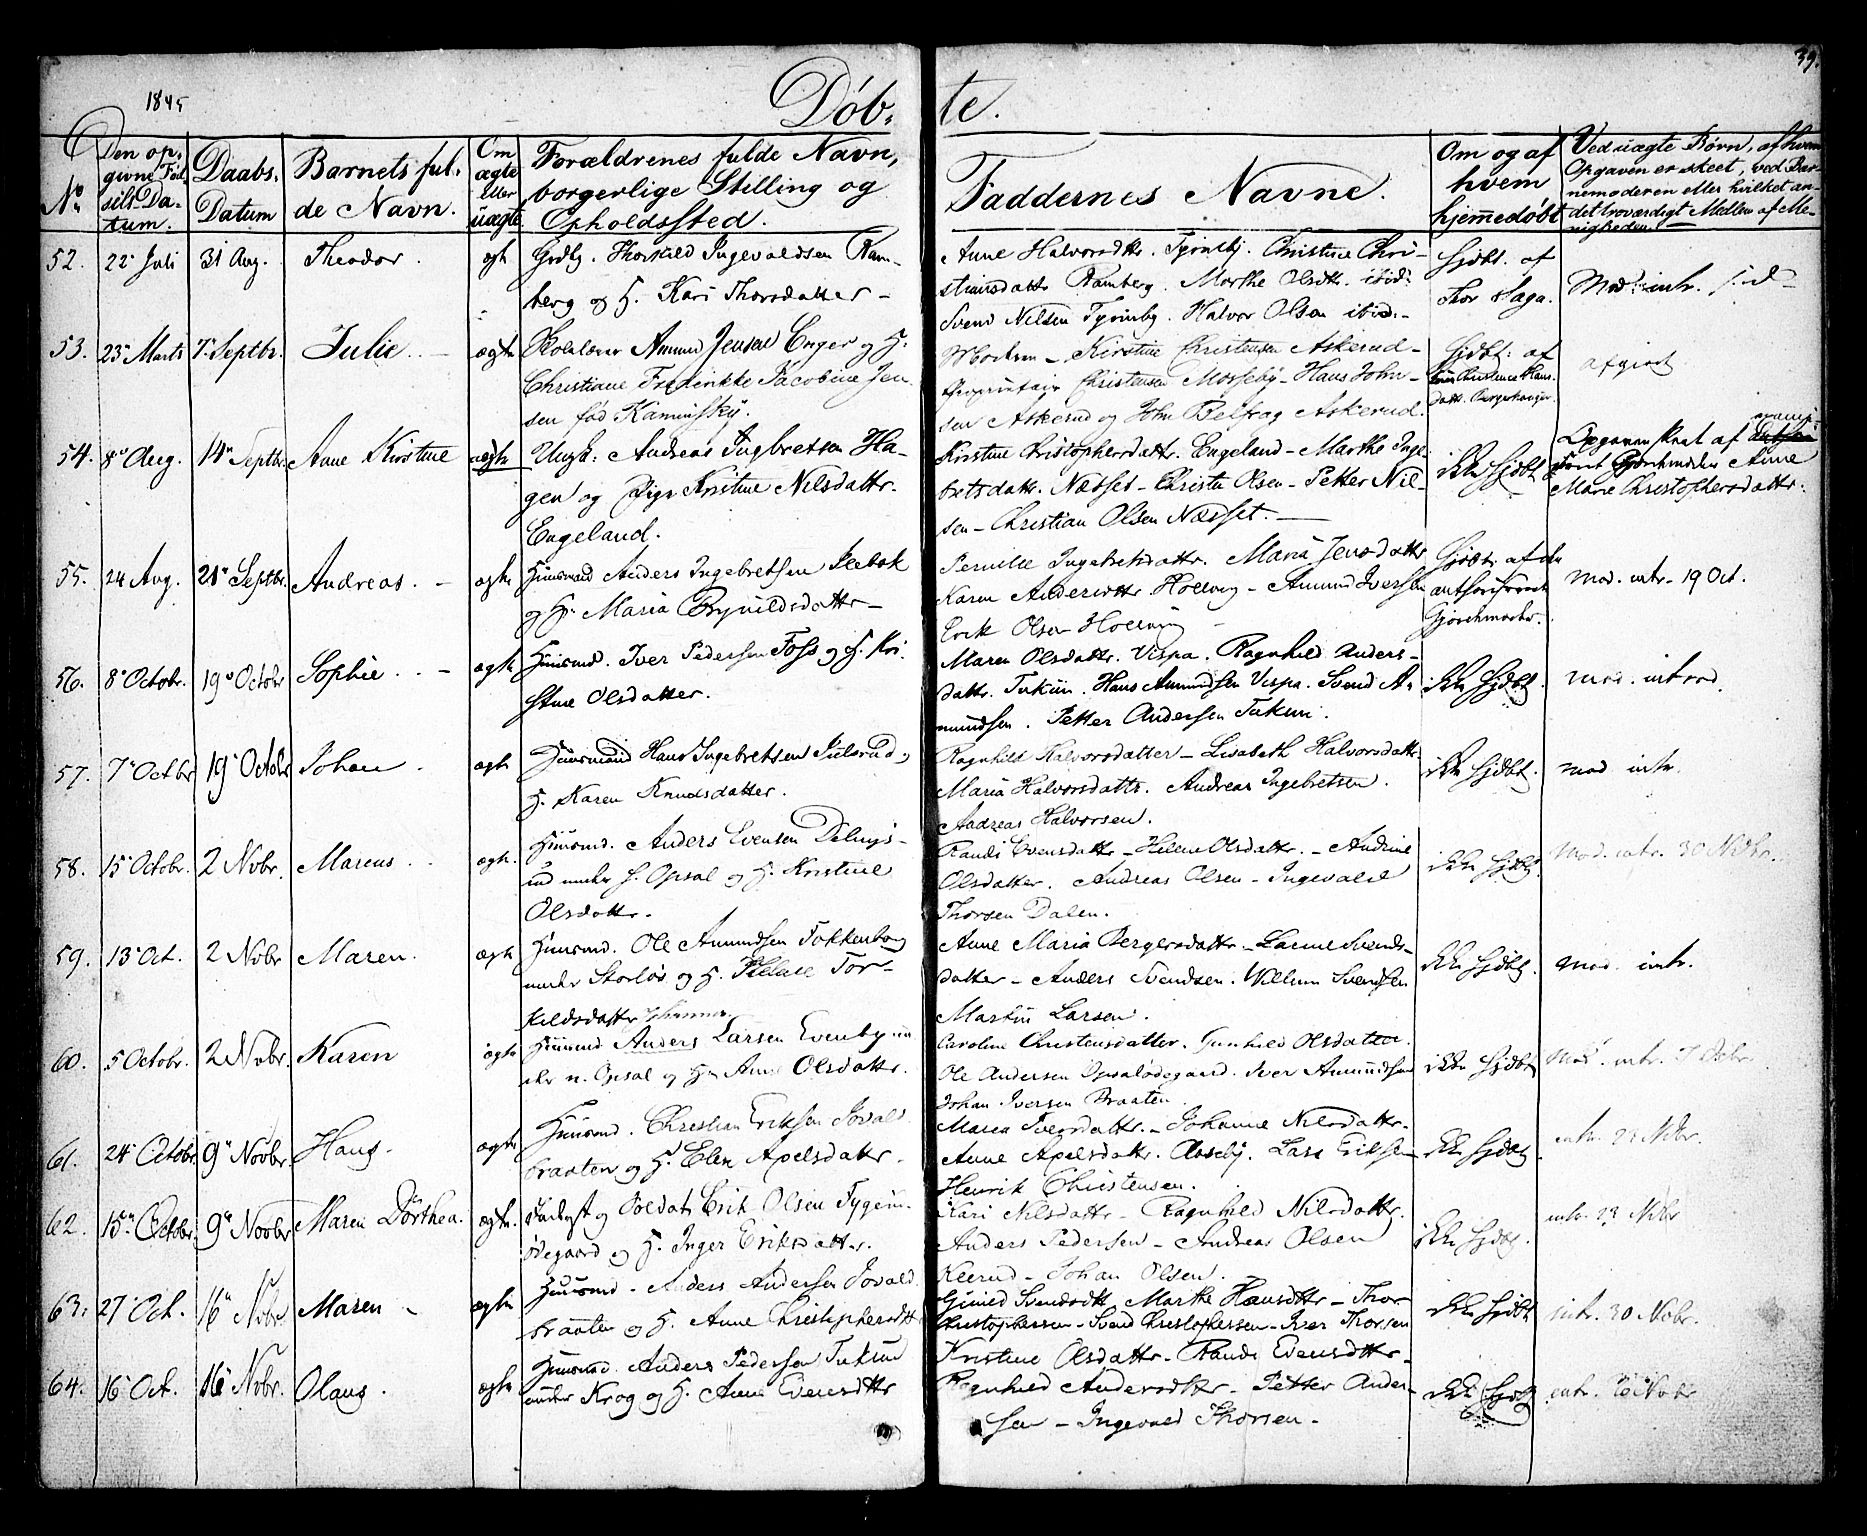 39.
1845
Døb- te.
No
Den opgivne Fødsels Datum.
Daabs-Datum
Barnets fulde Navn.
Om ægte eller uægte
Forældrenes fulde Navn, borgerlige Stilling og Opholdssted.
Faddernes Navne.
Om og af hvem hjemmedøbt
Ved uægte Børn, af hvem Opgaven er skeet, ved Barnemoderen eller hvilket andet troværdigt Medlem af Menigheden.
52. 22 Juli 31 Aug. Theodor. ægte
Grdbr. Thorkild Ingevaldsen Ram-
berg og H. Kari Thorsdatter -
Anne Halvorsdttr. Tyrinsby. Christine Chri-
stiansdattr Ramberg. Marthe Olsdttr. ibid:
Svend Nilsen Tyrinby. Halvor Olsen ibid:-
Hjdbt. af
Thor Haga.
Mod. intr.
53. 23 Marts 7 Septbr. Julie. - ægte
Skolelærer Amund Jensen Enger og H:
Christiane Fredrikke Jacobine Jen-
sen fød Kaminsky.
Kirstine Christensen Askerud -
Proprietair Christensen Mosseby - Hans John-
sen Askerud og John Belfrag Askerud.
Hjdbt: af
afgivet
54. 8 Aug. 14 Septbr. Anne Kirstine uægte
Ungk: Andreas Ingbretsen Ha-
gen og Pige Kristine Nilsdattr.
Engeland.
Kirstine Christophersdattr. Engeland - Marthe Inge
bretsdattr. Næsset - Christen Olsen - Petter Nil-
sen - Christian Olsen Næsset. -
ikke Hjdbt
Opgaven skeet af
Gjordemoder Anne
Marie Christophersdattr.
55. 24 Aug. 21 Septbr. Andreas. - ægte
Huusmand Anders Ingebretsen
og H. Maria Brynildsdattr -
Pernille Ingebretsdattr. Maria Jensdattr
Karen Andersdttr Holling - Amund Iversen
Erik Olsen
Hjdbt. af den
Gjordemoder.
Mod. intr. 19 Oct.
56. 8 Octobr. 19 Octobr Sophie. - ægte
Huusmd. Iver Pedersen Foss og H. Kri-
stine Olsdatter.
Maren Olsdattr. Vispa. Ragnhild Anders-
dattr. Tukun. Hans Amundsen Vispa. Svend A-
mundsen. Petter Andersen Tukun.
ikke Hjdbt.
Mod. introd.
57. 7 Octbr 19 Octobr Johan. ægte
Huusmand Hans Ingebretsen Julsrud,
H. Karen Knudsdatter.
Ragnhild Halvorsdatter - Lisabeth Halvorsdattr.
Maria Halvorsdattr. Andreas Ingebretsen.
Andreas Halvorsen.
ikke Hjdbt.
Mod. intr.
58. 15 Octobr. 2 Nobr. Marcus. ægte.
Huusmd. Anders Evensen
under S. Opsal og H. Kristine
Olsdattr.
Randi Evensdattr - Helene Olsdattr. - Andrine
Olsdatter. Andreas Olsen - Ingevald
Thorsen Dalen.
ikke Hjdbt.
Mod. intr. 30 Nvbr.
59. 13 Oct. 2 Nobr Maren. ægte
Huusmd. Ole Amundsen Fokkenborg
under Storløs og H. Helene Tor-
kildsdatter
Anne Maria Bergersdattr - Larine Svends-
datter - Anders Svendsen. Willum Svendsen
Martin Larsen.
ikke Hjdbt.
Mod. intr.
60. 5 Octobr. 2 Nobr. Karen ægte
Huusmd Anders Larsen Evenby un-
der n. Opsal og H. Anne Olsdattr.
Caroline Christensdatter. Gunhild Olsdatter.
Ole Andersen Opsalødegaard. Iver Amundsen
Johan Iversen Braaten.
ikke Hjdbt
Mod. intr.
61. 24 Octobr. 9 Novbr. Hans. ægte
Huusmd. Christian Eriksen Jovals-
braaten og H. Elen Apelsdattr.
Maren Iversdattr. - Johanne Nilsdattr.
Anne Apelsdattr. Aaseby. Lars Eriksen
Henrik Christensen.
ikke Hjdbt
intr. 23 Nvbr.
62. 15 Octobr. 9 Novbr Maren Dorthea. ægte.
og Soldat Erik Olsen
ødegaard og H. Inger Eriksdatter.
Kari Nilsdattr - Ragnhild Nilsdattr.
Anders Pedersen - Andreas Olsen
Kleerud - Johan Olsen.
ikke Hjdbt.
intr. 23 Nvbr
63. 27 Oct. 16 Nobr. Maren - ægte
Huusmd - Anders Andersen Jovalds
braaten og H. Anne Christophersdttr
Svendsdtt. Marthe Hansdttr - Thor
Christophersen - Svend Christophersen - Iver Thorsen
ikke Hjdbt
intr. 30 Nobr.
64. 16 Oct. 16 Nobr. Olaus. ægte
Huusmd. Anders Pedersen Tukun
under Krog og H. Anne Evensdttr
Kristine Olsdattr - Randi Evensdttr -
Ragnhild Andersdttr - Petter Ander-
sen - Ingevald Thorsen -
ikke Hjdbt
intr. Nobr